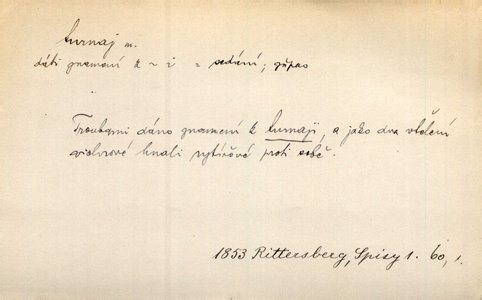 turnaj m.
dáti znamení k ~ i = sedání; zápas
Troubami dáno znamení k turnaji, a jako dva vtělení
vichrové hnali rytířové proti sobě.
1853 Rittersberg, Spisy 1. 60,